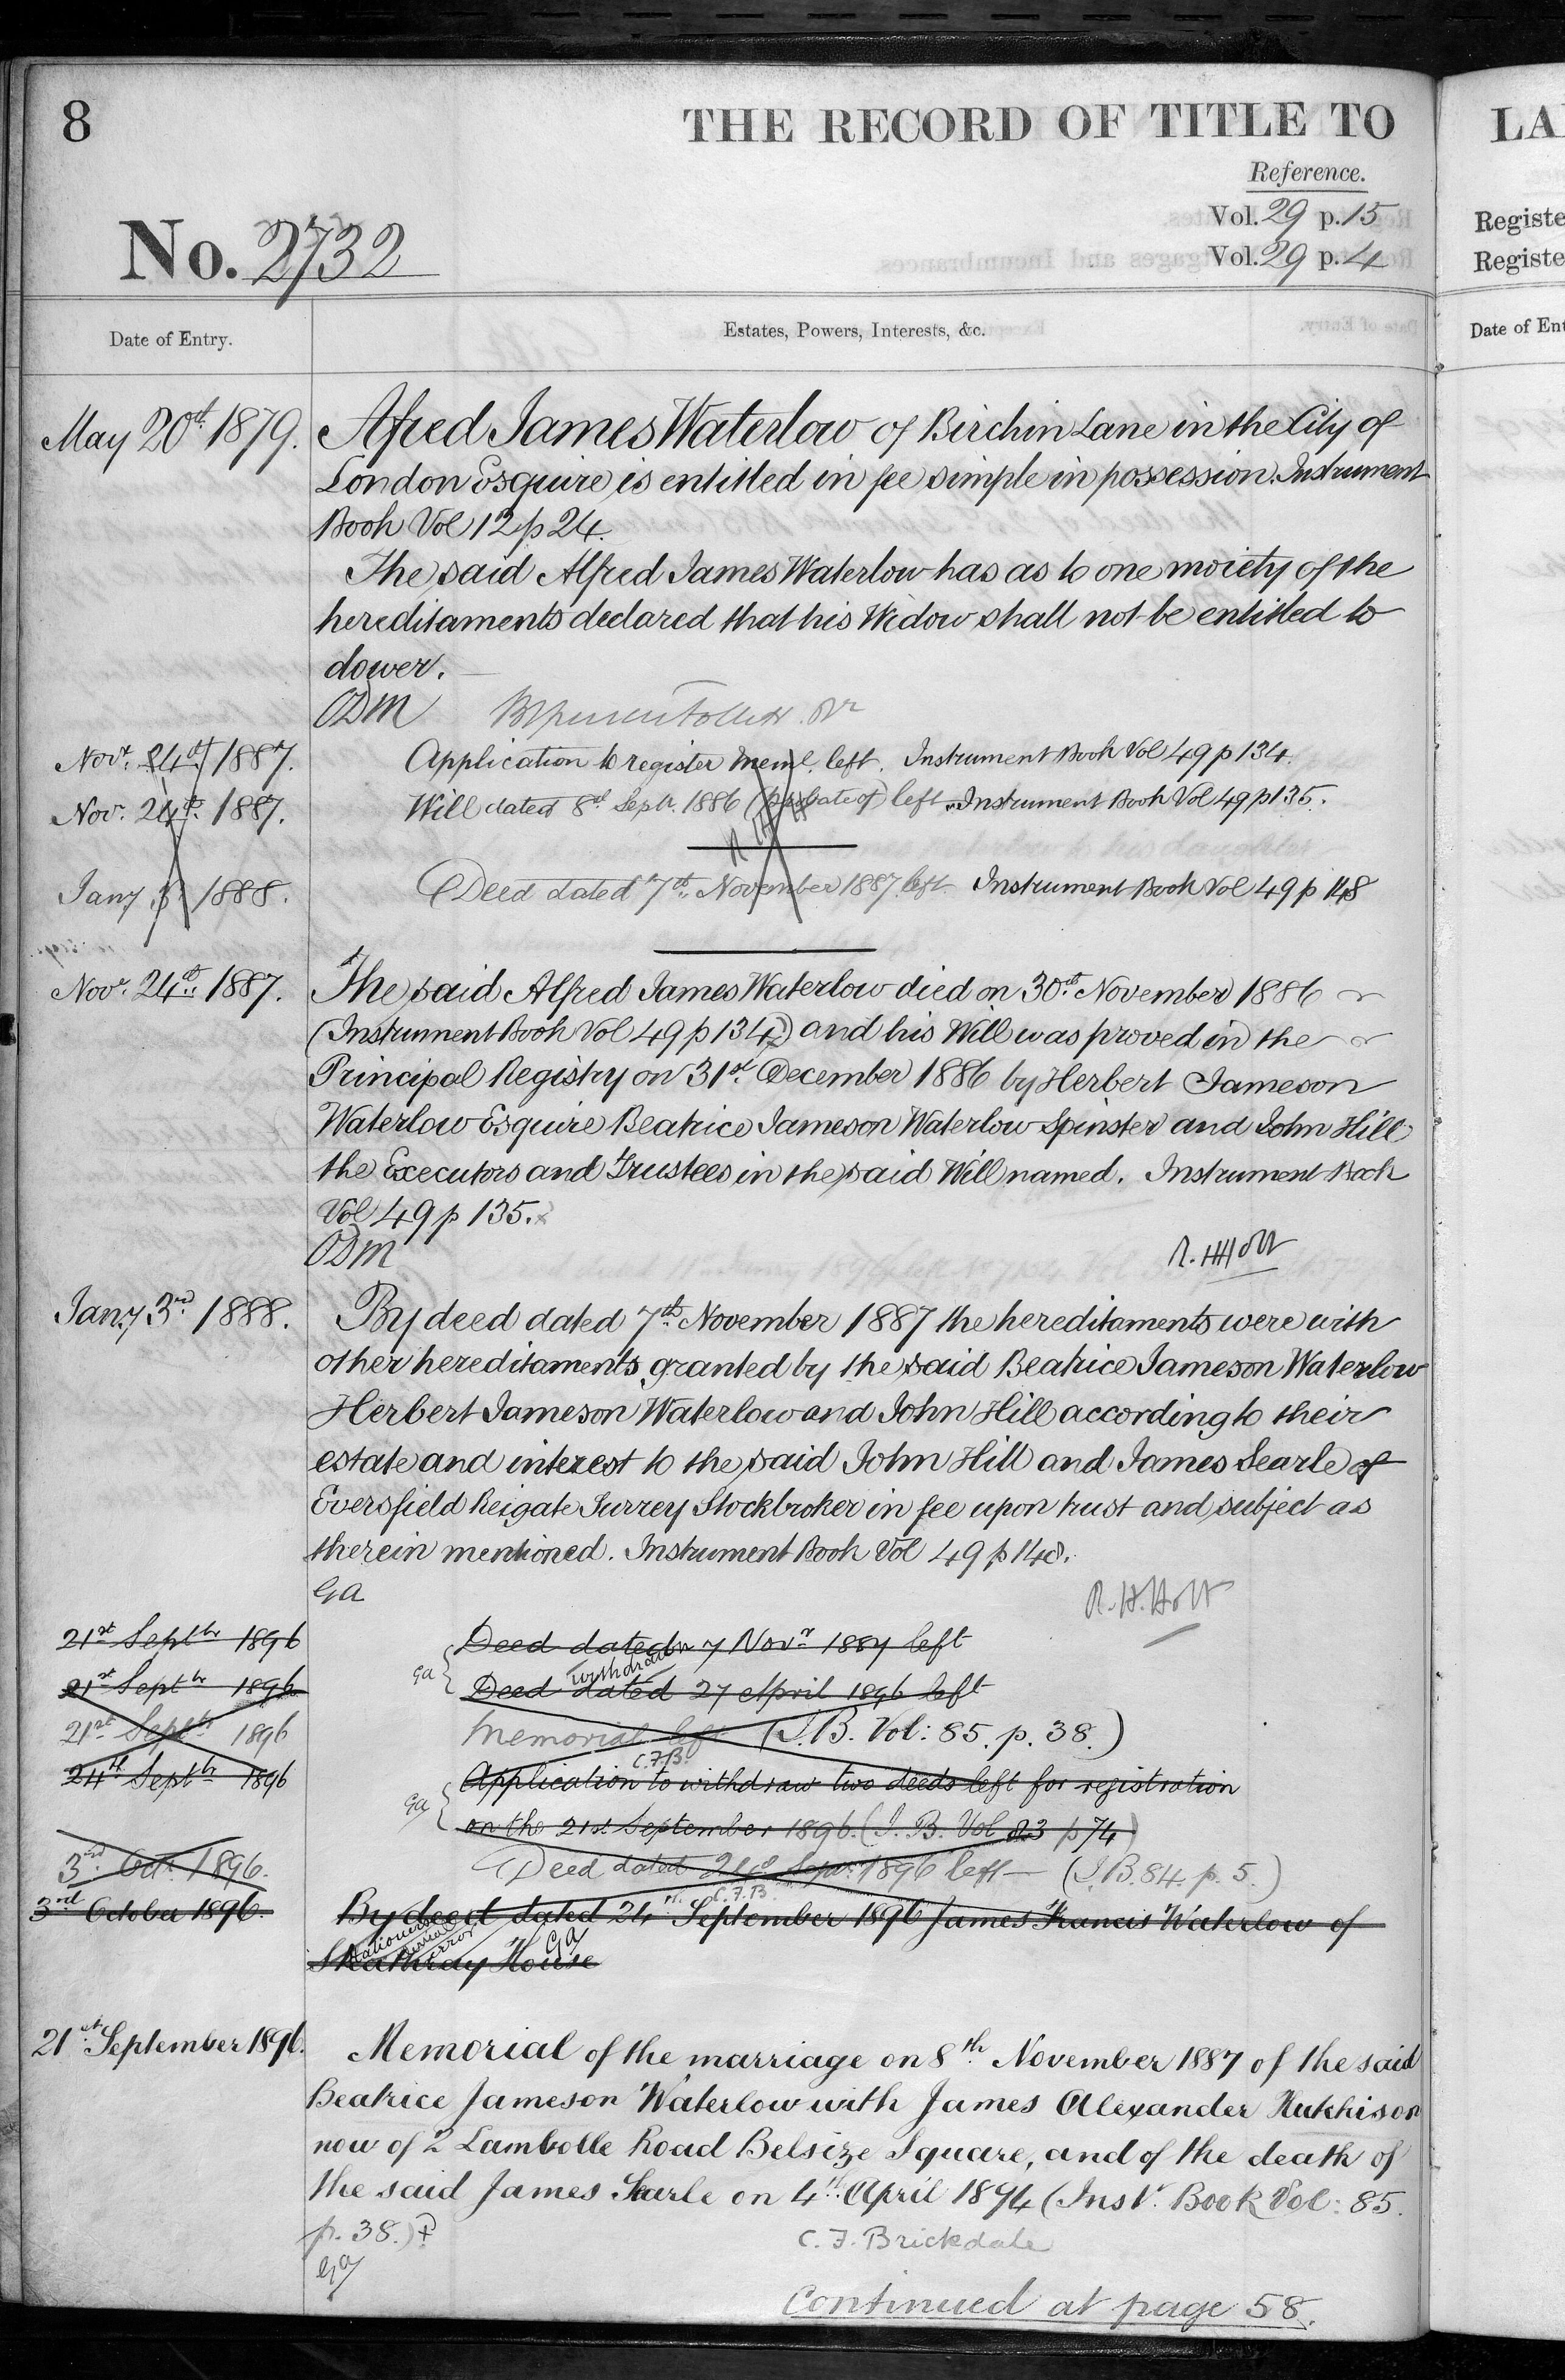 8
THE RECORD OF TITLE TO
LA
Reference.
Vol. 29 p. 15
Registe
No. 2732
Vol. 29 p. 4
Registe
Date of Entry.
Estates, Powers, Interests, &c.
Date of Ent
May 20th 1879. Afred James Waterlow of Birchin Lane in the City of
London Esquire is entitled in fee simple in possession. Instrument
Book Vol 12 p 24.
The said Alfred James Waterlow has as to one moiety of the
hereditaments declared that his Widow shall not be entitled to
dower.
ODM
Novr. 24th 1887. Application to register Meml. left. Instrument Book Vol 49 p 134.
Novr. 24th 1887. Will dated 8th Septr. 1886 (probate of) left. Instrument Book Vol 49 p 135.
Jany 3 1888. Deed dated 7th November 1887 left Instrument Book Vol 49 p 148
Novr. 24th 1887. The said Alfred James Waterlow died on 30th November 1886
(Instrument Book Vol 49 p 134) and his Will was proved in the
Principal Registry on 31st December 1886 by Herbert Jameson
Waterlow Esquire Beatrice Jameson Waterlow Spinster and John Hill
the Executors and Trustees in the said Will named. Instrument Book
Vol 49 p 135.
ODM R. H Holt
Jany 3rd 1888. By deed dated 7th November 1887 the hereditaments were with
other hereditaments granted by the said Beatrice Jameson Waterlow
Herbert Jameson Waterlow and John Hill according to their
estate and interest to the said John Hill and James Searle of
Eversfield Reigate Surrey Stockbroker in fee upon trust and subject as
therein mentioned. Instrument Book Vol 49 p 148.
GA R. H. Holt
21st Septbr 1896 Deed dated 7 Novr 1887 left
withdrawn
21st Septbr 1896 GA Deed dated 27 April 1896 left
21st Septbr 1896 Memorial left (I.B. Vol: 85. p. 38.)
C.F.B.
24th Septbr 1896 Application to withdraw two deeds left for registration
GA on the 21st September 1896. (I. B. Vol 83 p 74)
3rd Oct. 1896. Deed dated 24th Sepr. 1896 left — (I.B. 84. p. 5.)
C.F.B.
3rd October 1896. By deed dated 24th September 1896 James Francis Waterlow of
error GA
House
21st September 1896. Memorial of the marriage on 8th November 1887 of the said
Beatrice Jameson Waterlow with James Alexander Hutchison
now of 2 Lambolle Road Belsize Square, and of the death of
the said James Searle on 4th April 1894 (Inst. Book Vol: 85.
p. 38.)
C. F. Brickdale
GA
Continued at page 58.